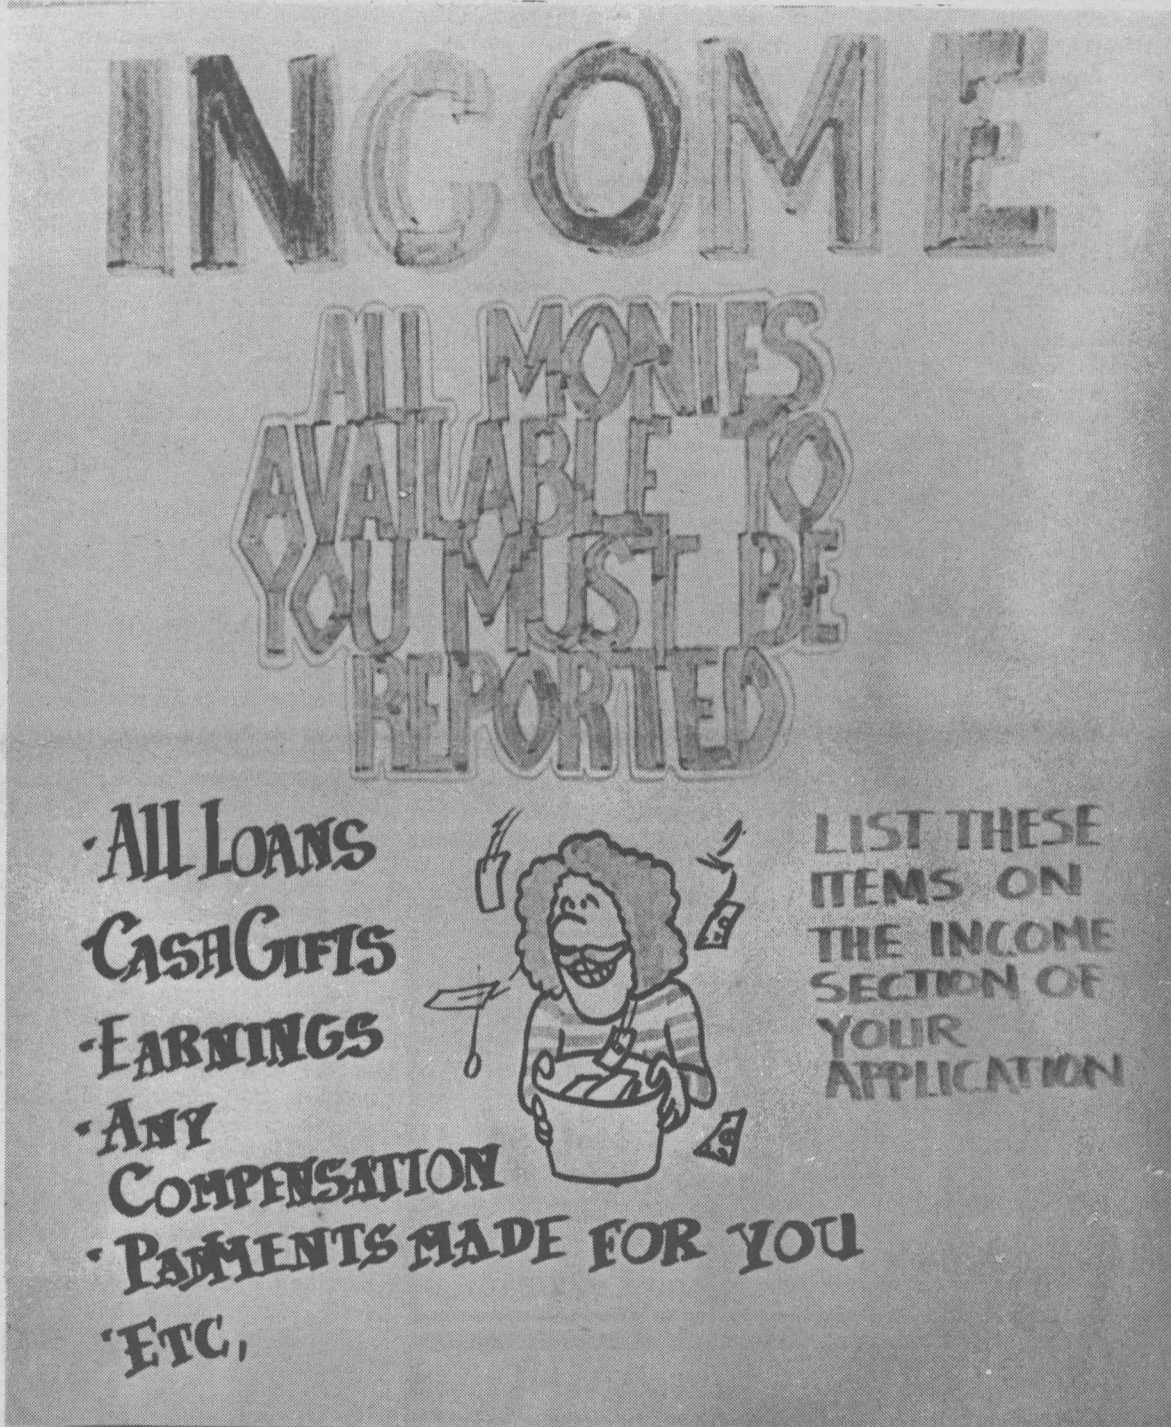 INCOME
ALL MONIES
AVAILABLE TO
YOU MUST BE
REPORTED
· ALL LOANS
· CASH GIFTS
· EARNINGS
· ANY
COMPENSATION
· PAYMENTS MADE FOR YOU
· ETC,
LIST THESE
ITEMS ON
THE INCOME
SECTION OF
YOUR
APPLICATION